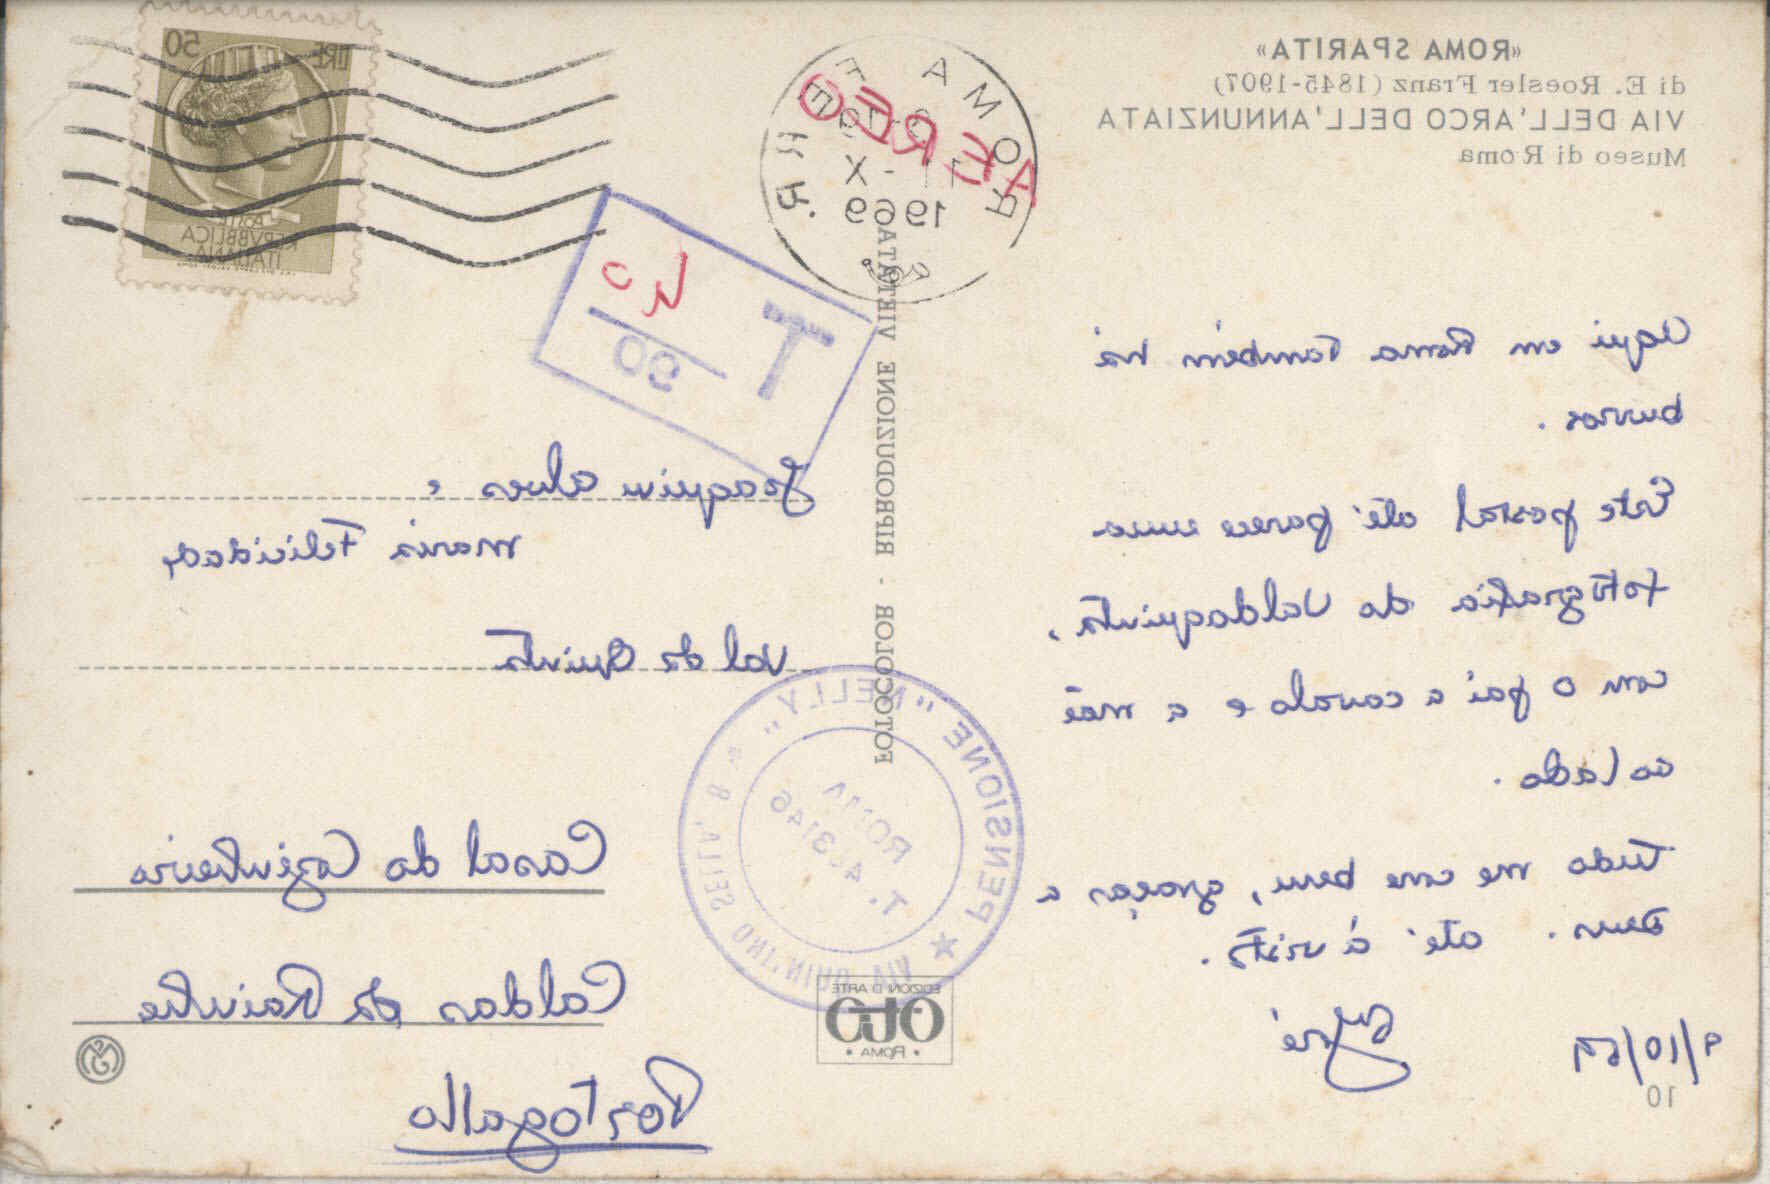 «ROMA SPARITA»
di E. Roesler Franz (1845-1907)
VIA DELL'ARCO DELL'ANNUNZIATA
Museo di Roma
Aqui em Roma também há
burros.
Este postal até parece uma
fotografia do Valdaquinta,
com o pai a cavalo e a mãe
ao lado.
Tudo me corre bem, graças a
Deus. até à vista.
José
9/10/69
10
FOTOCOLOR - RIPRODUZIONE VIETATA
EDIZIONI D'ARTE
OTO
• ROMA •
ROMA
11-X
1969
AEREO
50 LIRE
POSTE
REPVBBLICA
ITALIANA
T
40
90
Joaquim Alves e
Maria Felicidade
Val da Quinta
Casal do Cozinheiro
Caldas da Rainha
Portogallo
★ PENSIONE "NELLY"
VIA QUINTINO SELLA, 8
ROMA